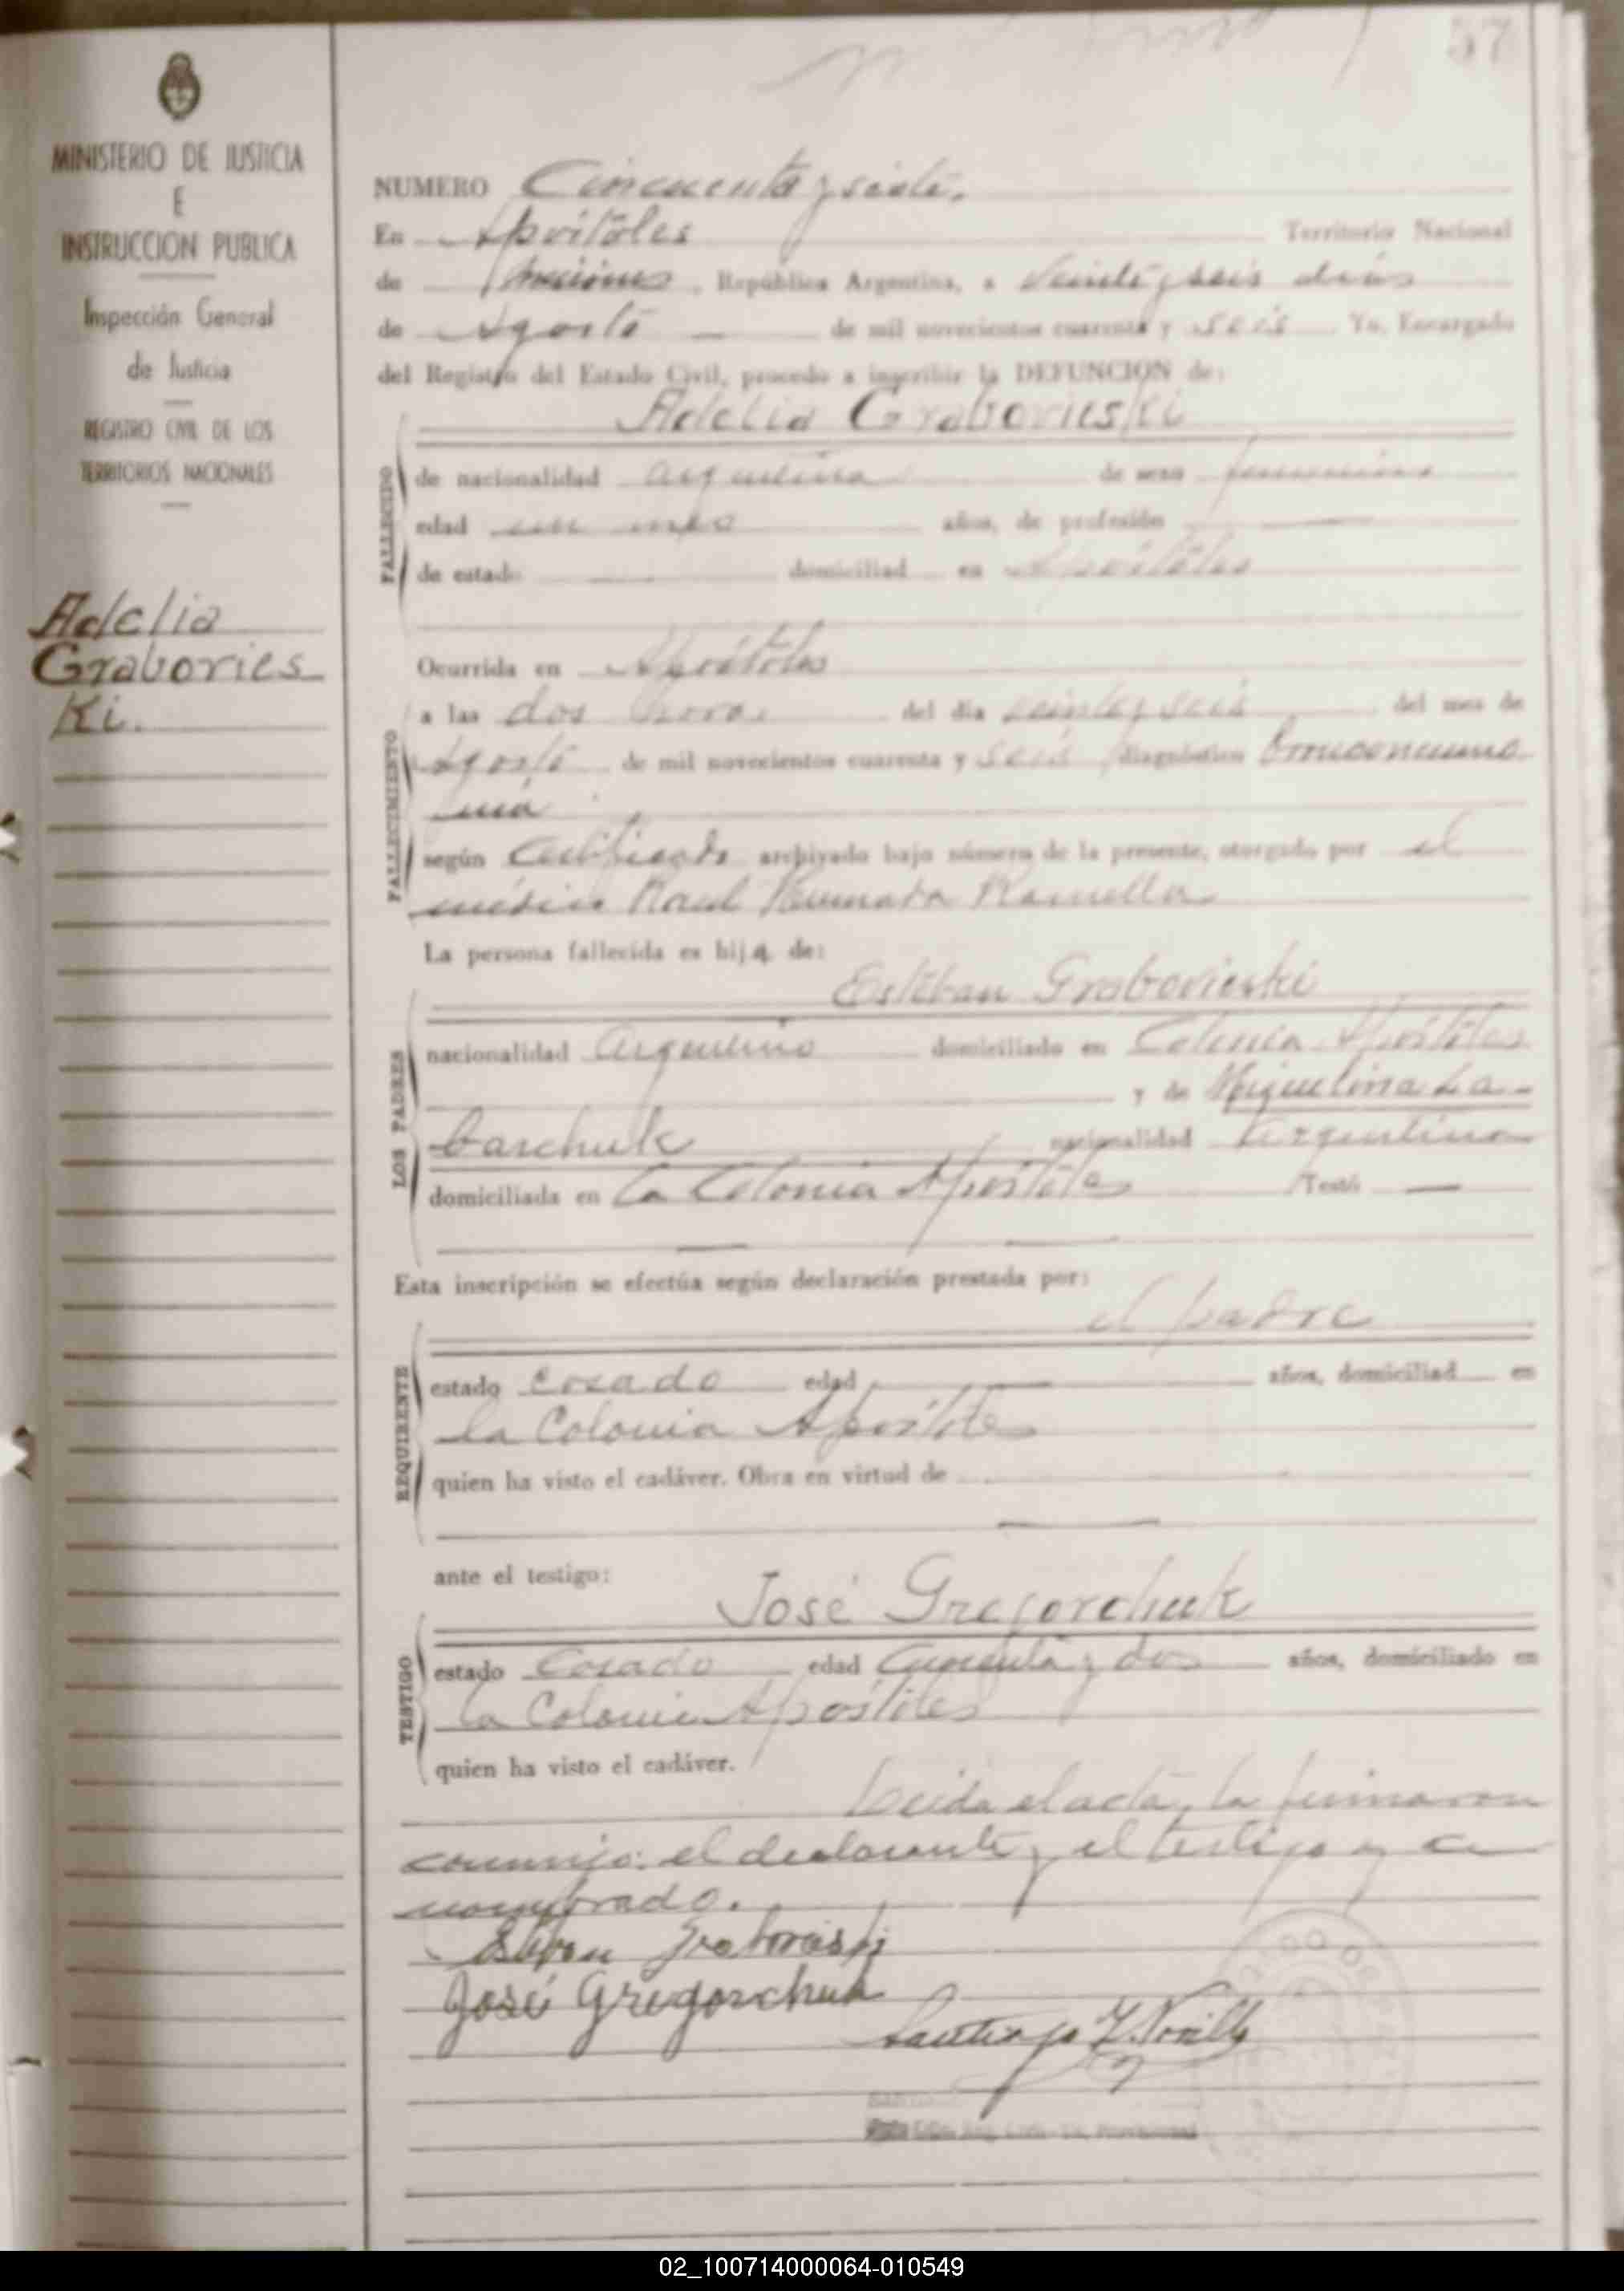 57
MINISTERIO DE JUSTICIA
E
INSTRUCCION PUBLICA
Inspección General
de Justicia
REGISTRO CIVIL DE LOS
TERRITORIOS NACIONALES
Adelia
Grabories
Ki.
NUMERO Cincuenta y siete.
En Apóstoles Territorio Nacional
de Misiones, República Argentina, a veinte y seis días
de Agosto de mil novecientos cuarenta y seis Yo, Encargado
del Registro del Estado Civil, procedo a inscribir la DEFUNCION de:
Adelia Graborieski
FALLECIDO
de nacionalidad argentina de sexo femenino
edad un mes años, de profesión
de estado domiciliad en Apóstoles
FALLECIMIENTO
Ocurrida en Apóstoles
a las dos horas del día veinte y seis del mes de
Agosto de mil novecientos cuarenta y seis diagnóstico Bronconeumo
nia
según certificado archivado bajo número de la presente, otorgado por el
médico Raul Ramella
La persona fallecida es hija de:
LOS PADRES
Esteban Graborieski
nacionalidad argentino domiciliado en Colonia Apóstoles
y de Miguelina La-
barchuk nacionalidad Argentina
domiciliada en la Colonia Apóstoles Testó
Esta inscripción se efectúa según declaración prestada por:
REQUIRENTE
el padre
estado casado edad años, domiciliad en
la Colonia Apóstoles
quien ha visto el cadáver. Obra en virtud de
ante el testigo:
TESTIGO
José Gregorchuk
estado Casado edad cincuenta y dos años, domiciliado en
la Colonia Apóstoles
quien ha visto el cadáver.
Leida el acta, la firmaron
conmigo: el declarante y el testigo
nombrado.
Esteban Graborieski
José Gregorchuk
Santiago
02_100714000064-010549